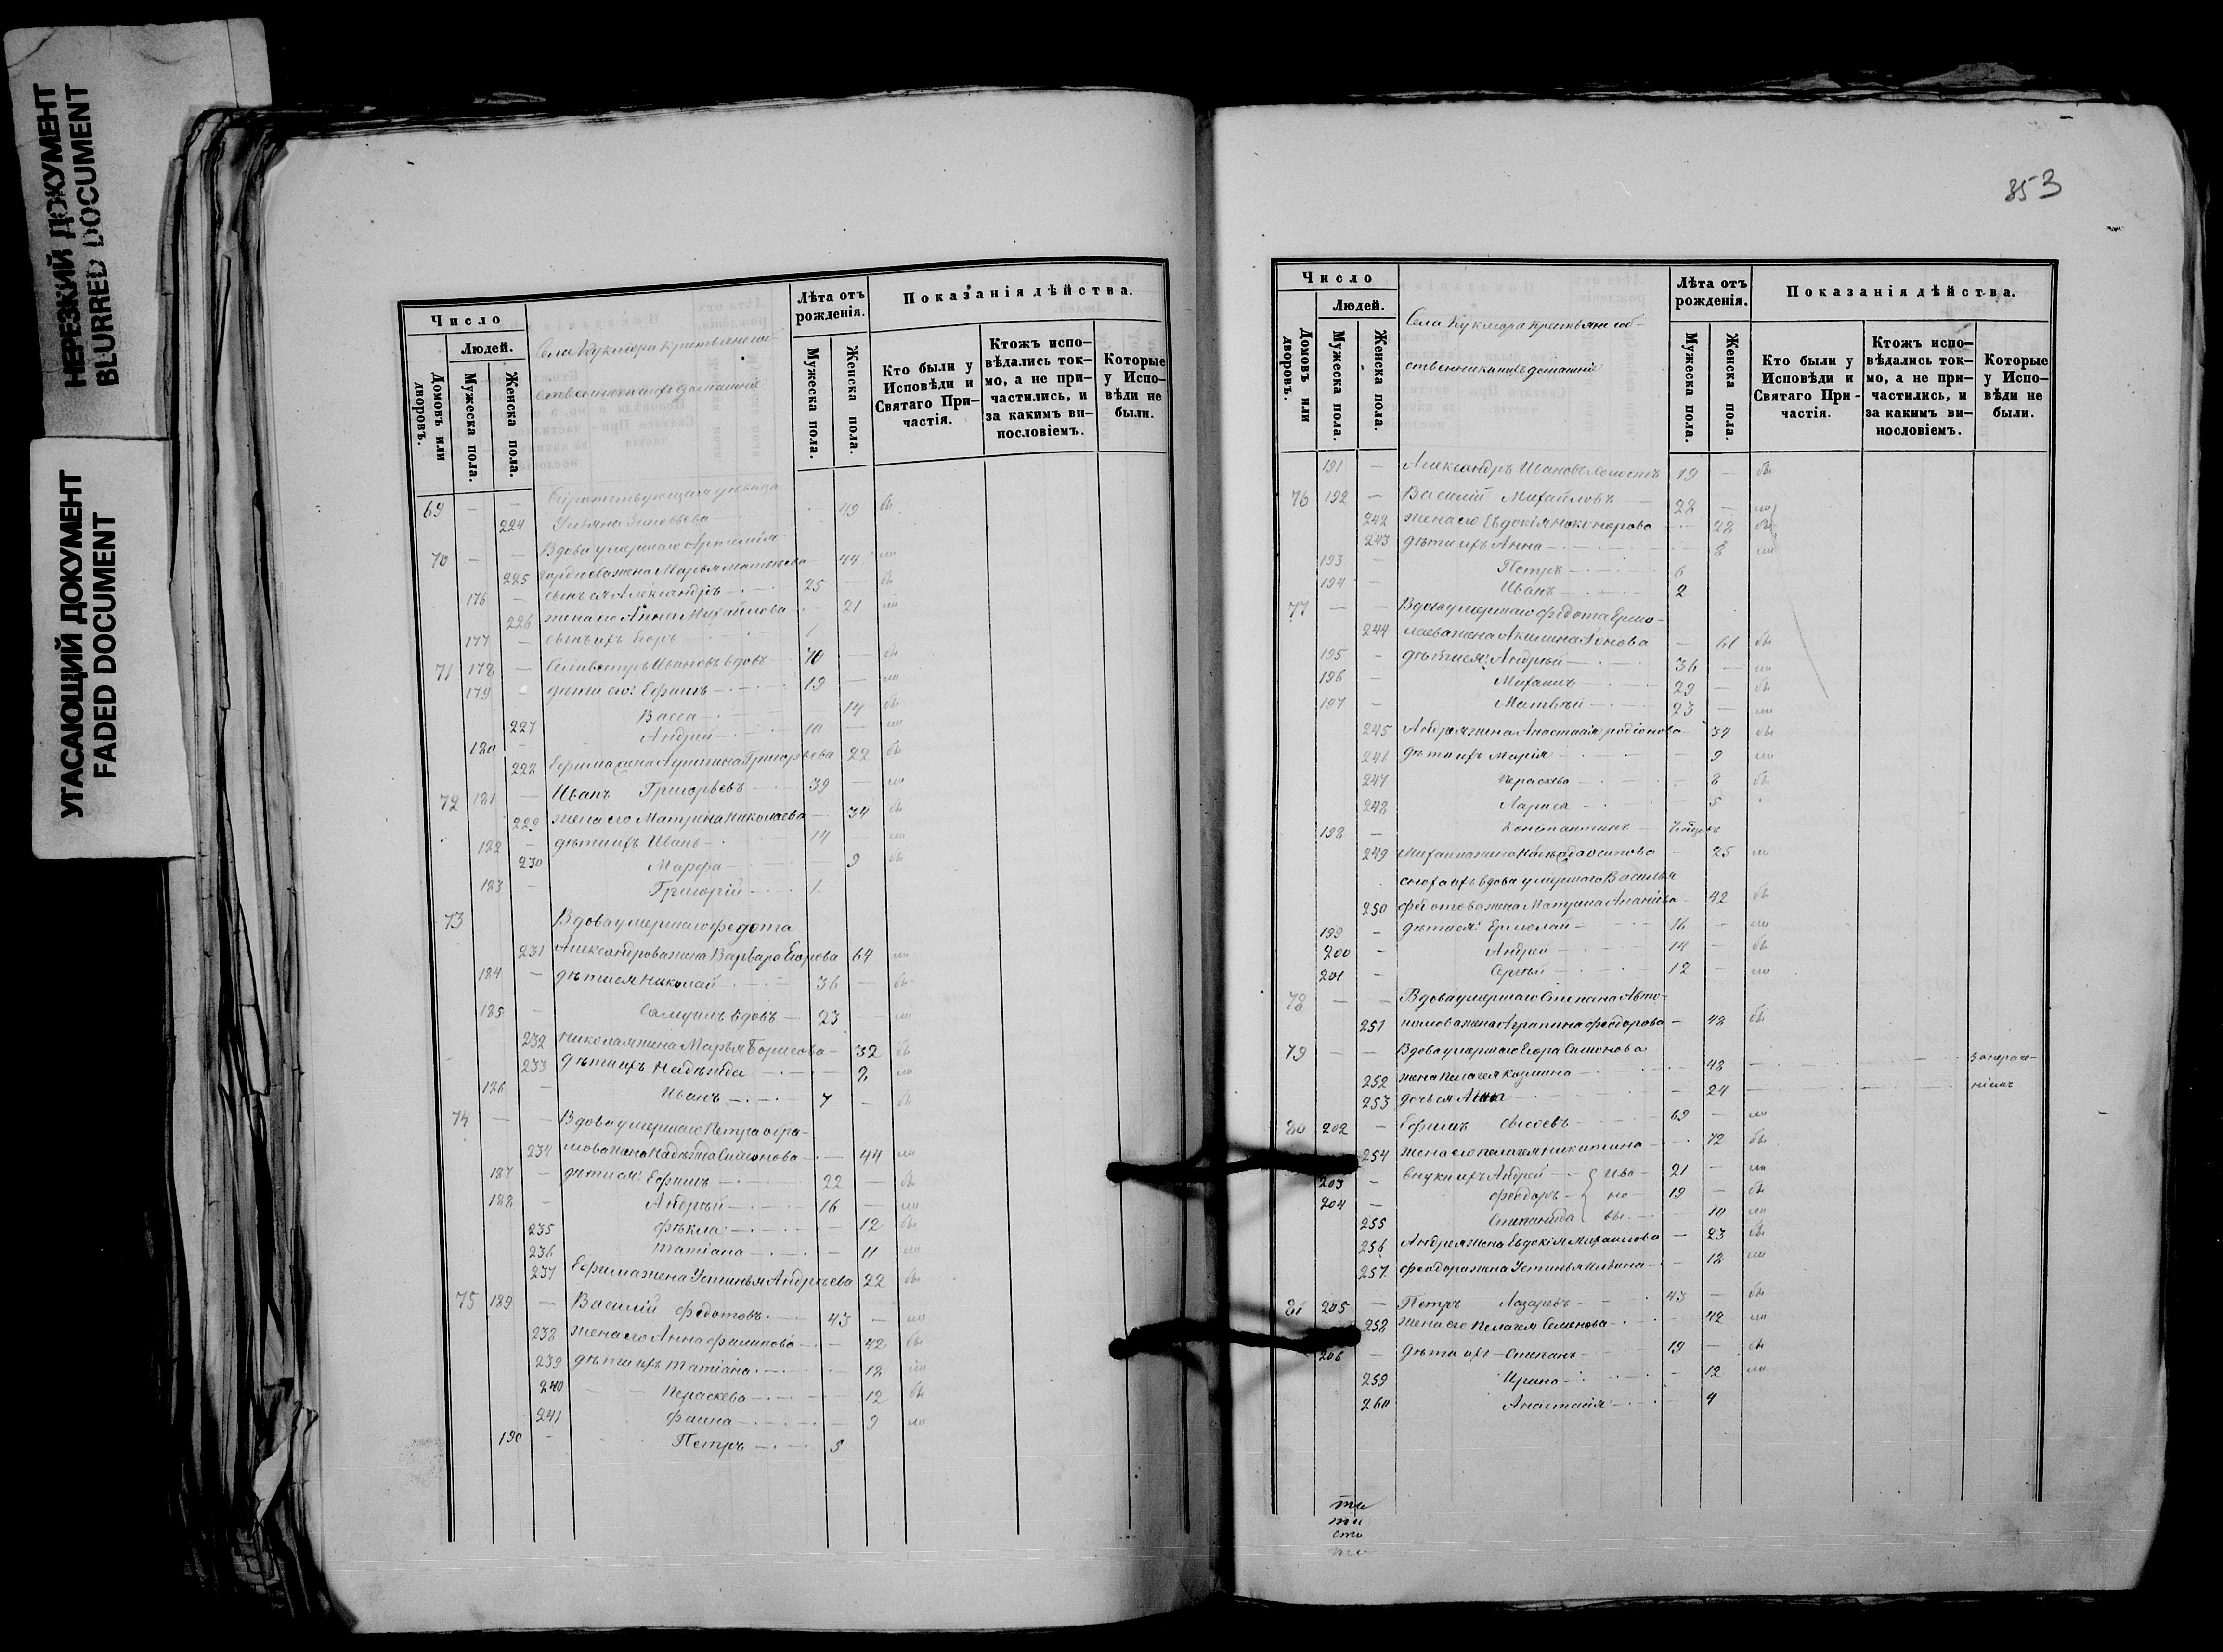 НЕРЕЗКИЙ ДОКУМЕНТ
BLURRED DOCUMENT
УГАСАЮЩИЙ ДОКУМЕНТ
FADED DOCUMENT
Число
Людей.
Домовъ или дворовъ.
Мужеска пола.
Женска пола.
Села Кукмора крестьяне соб-
ственники ихъ домашніе
Лѣта отъ рожденія.
Мужеска пола.
Женска пола.
Показанія дѣйства.
Кто были у Исповѣди и Святаго При-частія.
Ктожъ испо-вѣдались ток-мо, а не при-частились, и за какимъ ви-нословіемъ.
Которые у Испо-вѣди не были.
69 — — Сиротствующая дѣвица
224 Ульяна Зиновьева 49 бы
70 — — Вдова умершаго Артемія
225 жена Марья 44 ли
176 — сынъ ея Александръ 25 бы
226 жена его Анна Михайлова 21 ли
177 — сынъ ихъ Егоръ 1
71 178 — Селивестръ Ивановъ вдовъ 70 — бы
179 — дѣти его: Ефимъ 19 — ли
227 Васса 14 бы
180 — Андрей 10 — ли
228 Ефима жена Агрипина Григорьева 22 бы
72 181 — Иванъ Григорьевъ 39 — ли
229 жена его Матрена Николаева 34 бы
182 — дѣти ихъ Иванъ 14 ли
230 Марфа 9 бы
183 — Григорій 1
73 Вдова умершаго Федота
231 Александрова жена Варвара Егорова 64 ли
184 — дѣти ея Николай 36 — бы
185 — Самуилъ вдовъ 23 — ли
232 Николая жена Марья Борисова 32 бы
233 дѣти ихъ Надѣжда 8 ли
186 — Иванъ 7 — бы
74 — — Вдова умершаго Петра Абра-
234 мова жена Надѣжда Симонова 44 ли
187 — дѣти ея: Ефимъ 22 — бы
188 — Андрей 16 — ли
235 Фѣкла 12 бы
236 Татіана 11 ли
237 Ефима жена Устинья Андрѣева 22 бы
75 189 — Василій Федотовъ 43 — ли
238 жена его Анна Филипова 42 бы
239 дѣти ихъ Татіана 18 ли
240 Параскева 12 бы
241 Фаина 9 ли
190 — Петръ 5
853
Число
Людей.
Домовъ или дворовъ.
Мужеска пола.
Женска пола.
Села Кукмора крестьяне соб-
ственники ихъ домашніе
Лѣта отъ рожденія.
Мужеска пола.
Женска пола.
Показанія дѣйства.
Кто были у Исповѣди и Святаго При-частія.
Ктожъ испо-вѣдались ток-мо, а не при-частились, и за какимъ ви-нословіемъ.
Которые у Испо-вѣди не были.
191 — Александръ Ивановъ холостъ 19 — бы
76 192 — Василій Михайловъ 28 — ли
242 жена его Евдокія Никонорова 28 бы
243 дѣти ихъ Анна 8 ли
193 — Петръ 6
194 — Иванъ 2
77 — — Вдова умершаго Федота Ермо-
244 лаева жена Акилина 61 бы
195 — дѣти ея: Андрей 36 — ли
196 — Михаилъ 29 — бы
197 — Матвѣй 23 — ли
245 Андрея жена Анастасія Родіонова 34 бы
246 дѣти ихъ Марія 9 ли
247 Параскева 8 бы
248 Лариса 5
198 — Константинъ
249 Михаила жена Осипова 25 ли
сноха ихъ вдова умершаго Василья
250 Федотова жена Матрена Ананіева 42 бы
199 — дѣти ея: Ермолай 16 — ли
200 — Андрей 14 — бы
201 — Сергѣй 12 — ли
78 — — Вдова умершаго Степана Авто-
251 номова жена Агрипина Феодорова 48 бы
79 — — Вдова умершаго Егора Симонова
252 жена Пелагея Козмина 48 за нераче-
253 дочь ея Анна 24 ніемъ
80 202 — Ефимъ 69 — ли
254 жена его Пелагея Никитина 72 бы
203 — внуки ихъ Андрей } Ива- 21 — ли
204 — Феодоръ } но- 19 — бы
255 Степанида } вы 10 ли
256 Андрея жена Евдокія Михаилова 23 бы
257 Феодора жена Устинья 18 ли
81 205 — Петръ Лазаревъ 43 — бы
258 жена его Пелагея Семенова 42 ли
206 — дѣти ихъ Степанъ 19 — бы
259 Ирина 12 ли
260 Анастасія 4